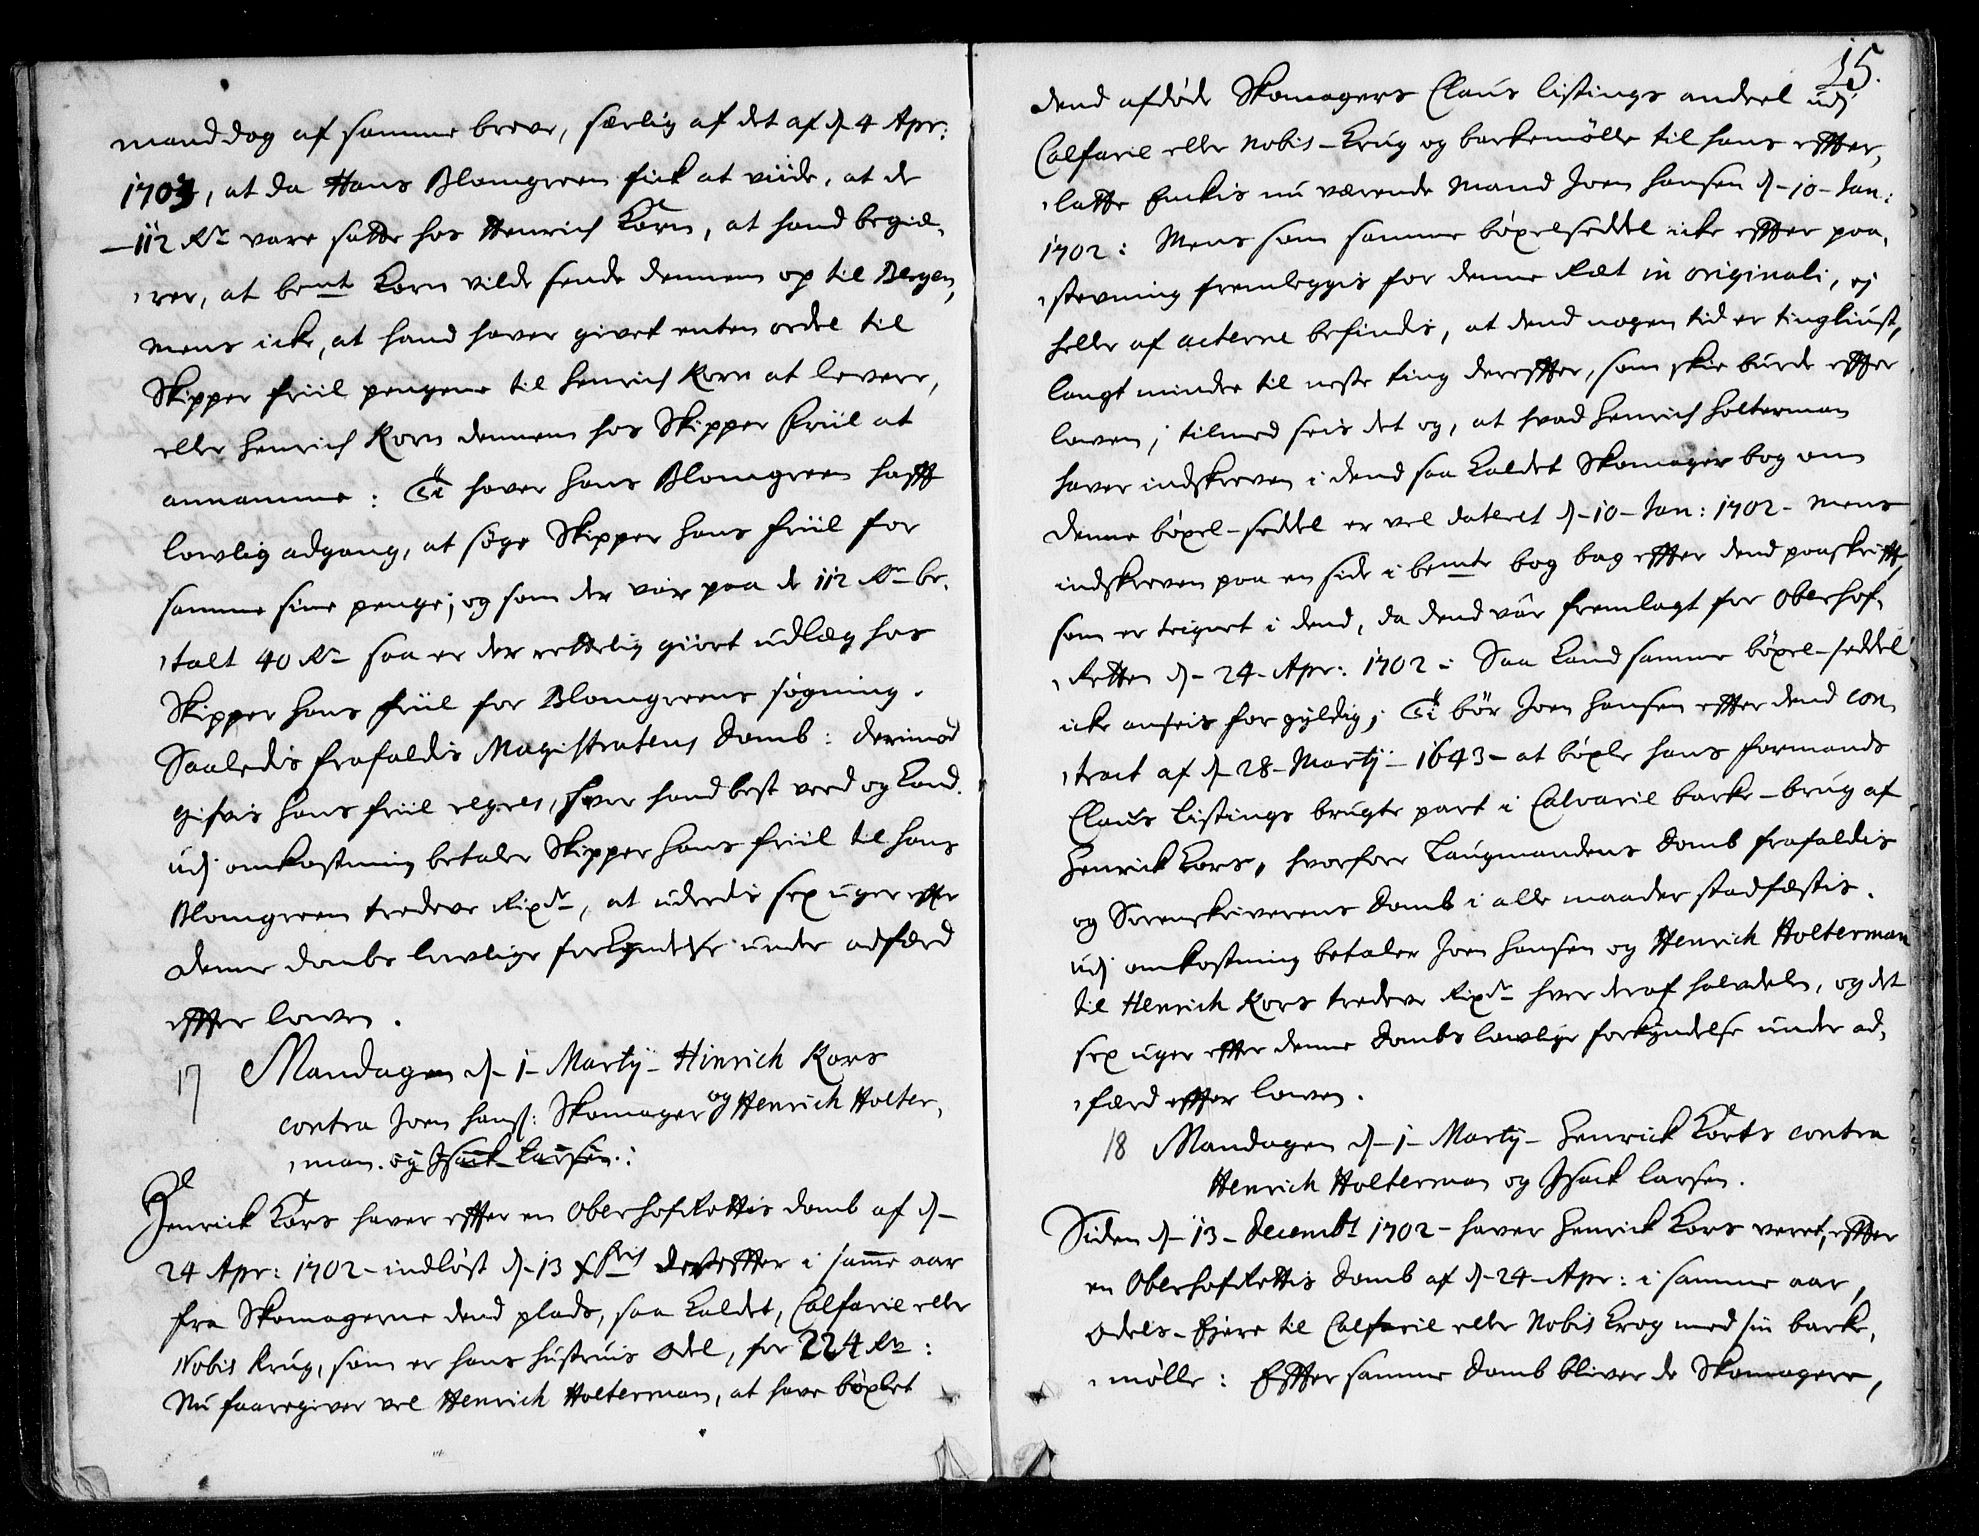 mand dog af samme breve, særlig af det af d. 4 Apr:
1703, at da Hans Blomgreen fick at viide, at de
112 Rdr vare satte hos Henrich Korn, at hand begiæ-
rer, at bemte Korn vilde sende dennem op til Bergen,
mens icke, at hand haver givet enten ordre til
Skipper Friil pengene til Henrich Korn at levere,
eller Henrich Korn dennem hos Skipper Friil at
annamme: Ti haver Hans Blomgreen hafft
lowlig adgang, at søge Skipper Hans Friil for
samme sine penge; og som der var paa de 112 Rdr be-
talt 40 Rdr saa er der rettelig giort udlæg hos
Skipper Hans Friil for Blomgreens søgning.
Saaledis frafaldis Magistratens Domb: derimod
gifvis Hans Friil regres, hvor hand best veed og kand.
udj omkostning betaler Skipper Hans Friil til Hans
Blomgreen tredeve Rixdr, at uderdis sex uger effter
denne dombs lowlige forkyndelse under adfærd
effter lowen.
17 Mandagen d. 1 Martij Hinrich Kors
contra Joen Hanss: Skomager og Henrich Holter-
man. og Isack Larsen.:
Henrick Kors haver effter en OberhofRettis domb af d.
24 Apr: 1702 indløst d. 13 Xbris dereffter i samme aar
fra Skomagerne dend plads, saa kaldet, Calfarie eller
Nobis Krug, som er hans hustruis odel, for 224 Rdr:
Nu foregiver vel Henrich Holterman, at have bøxlet
15.
dend afdøde Skomagers Claus Listings andeel udj
Calfarie eller Nobis-Krug og barkemølle til hans effter-
latte Enckis nu værende Mand Joen Hansen d. 10 Jan:
1702: Mens som samme bøxelseddel icke effter paa-
stevning fremleggis for denne Ræt in originali, ej
heller af acterne befindis, at dend nogen tid er tingliust,
langt mindre til neste ting dereffter, som skee burde effter
lowen; tilmed seis det og, at hvad Henrich Holterman
haver indskreven i dend saa kaldet Skomager bog om
denne bøxel-seddel er vel dateret d. 10 Jan: 1702 Mens
indskreven paa en side i bemte bog bag effter dend paaskrifft,
som er teignet i dend, da dend var fremlagt for Oberhof-
Retten d. 24 Apr: 1702: Saa kand samme bøxel-seddel
icke anseis for gyldig; Ti bør Joen Hansen effter dend con-
tract af d. 28 Martij 1643 at bøxle hans formands
Claus Listings brugte part i Calvarie barke-brug af
Henrick Kors, hvorfore Laugmandens Domb frafaldis
og Sorenskriverens Domb i alle maader stadfæstis.
udj omkostning betaler Joen Hansen og Henrich Holterman
til Henrich Kors tredeve Rixdr hver deraf halvdelen, og det
sex uger effter denne Dombs lowlige forkyndelse under ad-
færd effter lowen.
18 Mandagen d. 1 Martij Henrick Korts contra
Henrich Holterman og Isack Larsen.
Siden d. 13 Decembr 1702 haver Henrick Kors veret, effter
en OberhofRettis Domb af d. 24 Apr: i samme aar,
Odels-Ejere til Calfarie eller Nobis Krog med sin barke-
mølle: Effter samme Domb bliver de Skomagere,